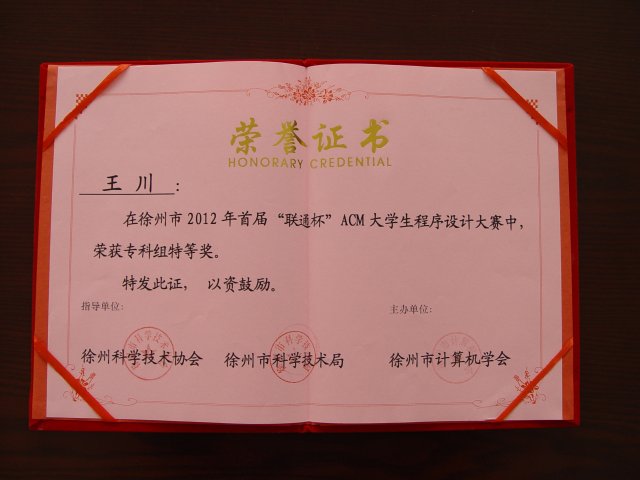 荣誉证书
HONORARY CREDENTIAL
王川：
在徐州市2012年首届“联通杯”ACM大学生程序设计大赛中，
荣获专科组特等奖。
特发此证，以资鼓励。
指导单位： 主办单位：
徐州科学技术协会 徐州市科学技术局 徐州市计算机学会